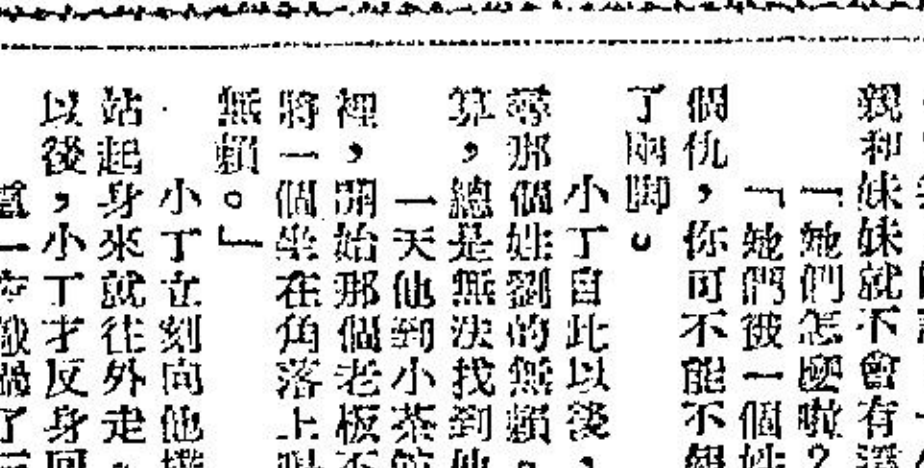 親和妹妹就不會有
「她們怎麼啦？
「她們被一個姓
個仇，你可不能不報
了兩脚。
小丁自此以後，
尋那個姓劉的無賴。
算，總是無法找到他
一天他到小茶館
裡，開始那個老板不
將一個坐在角落上
無賴。」
小丁立刻向他
站起身來就往外走，
以後，小丁才反身回